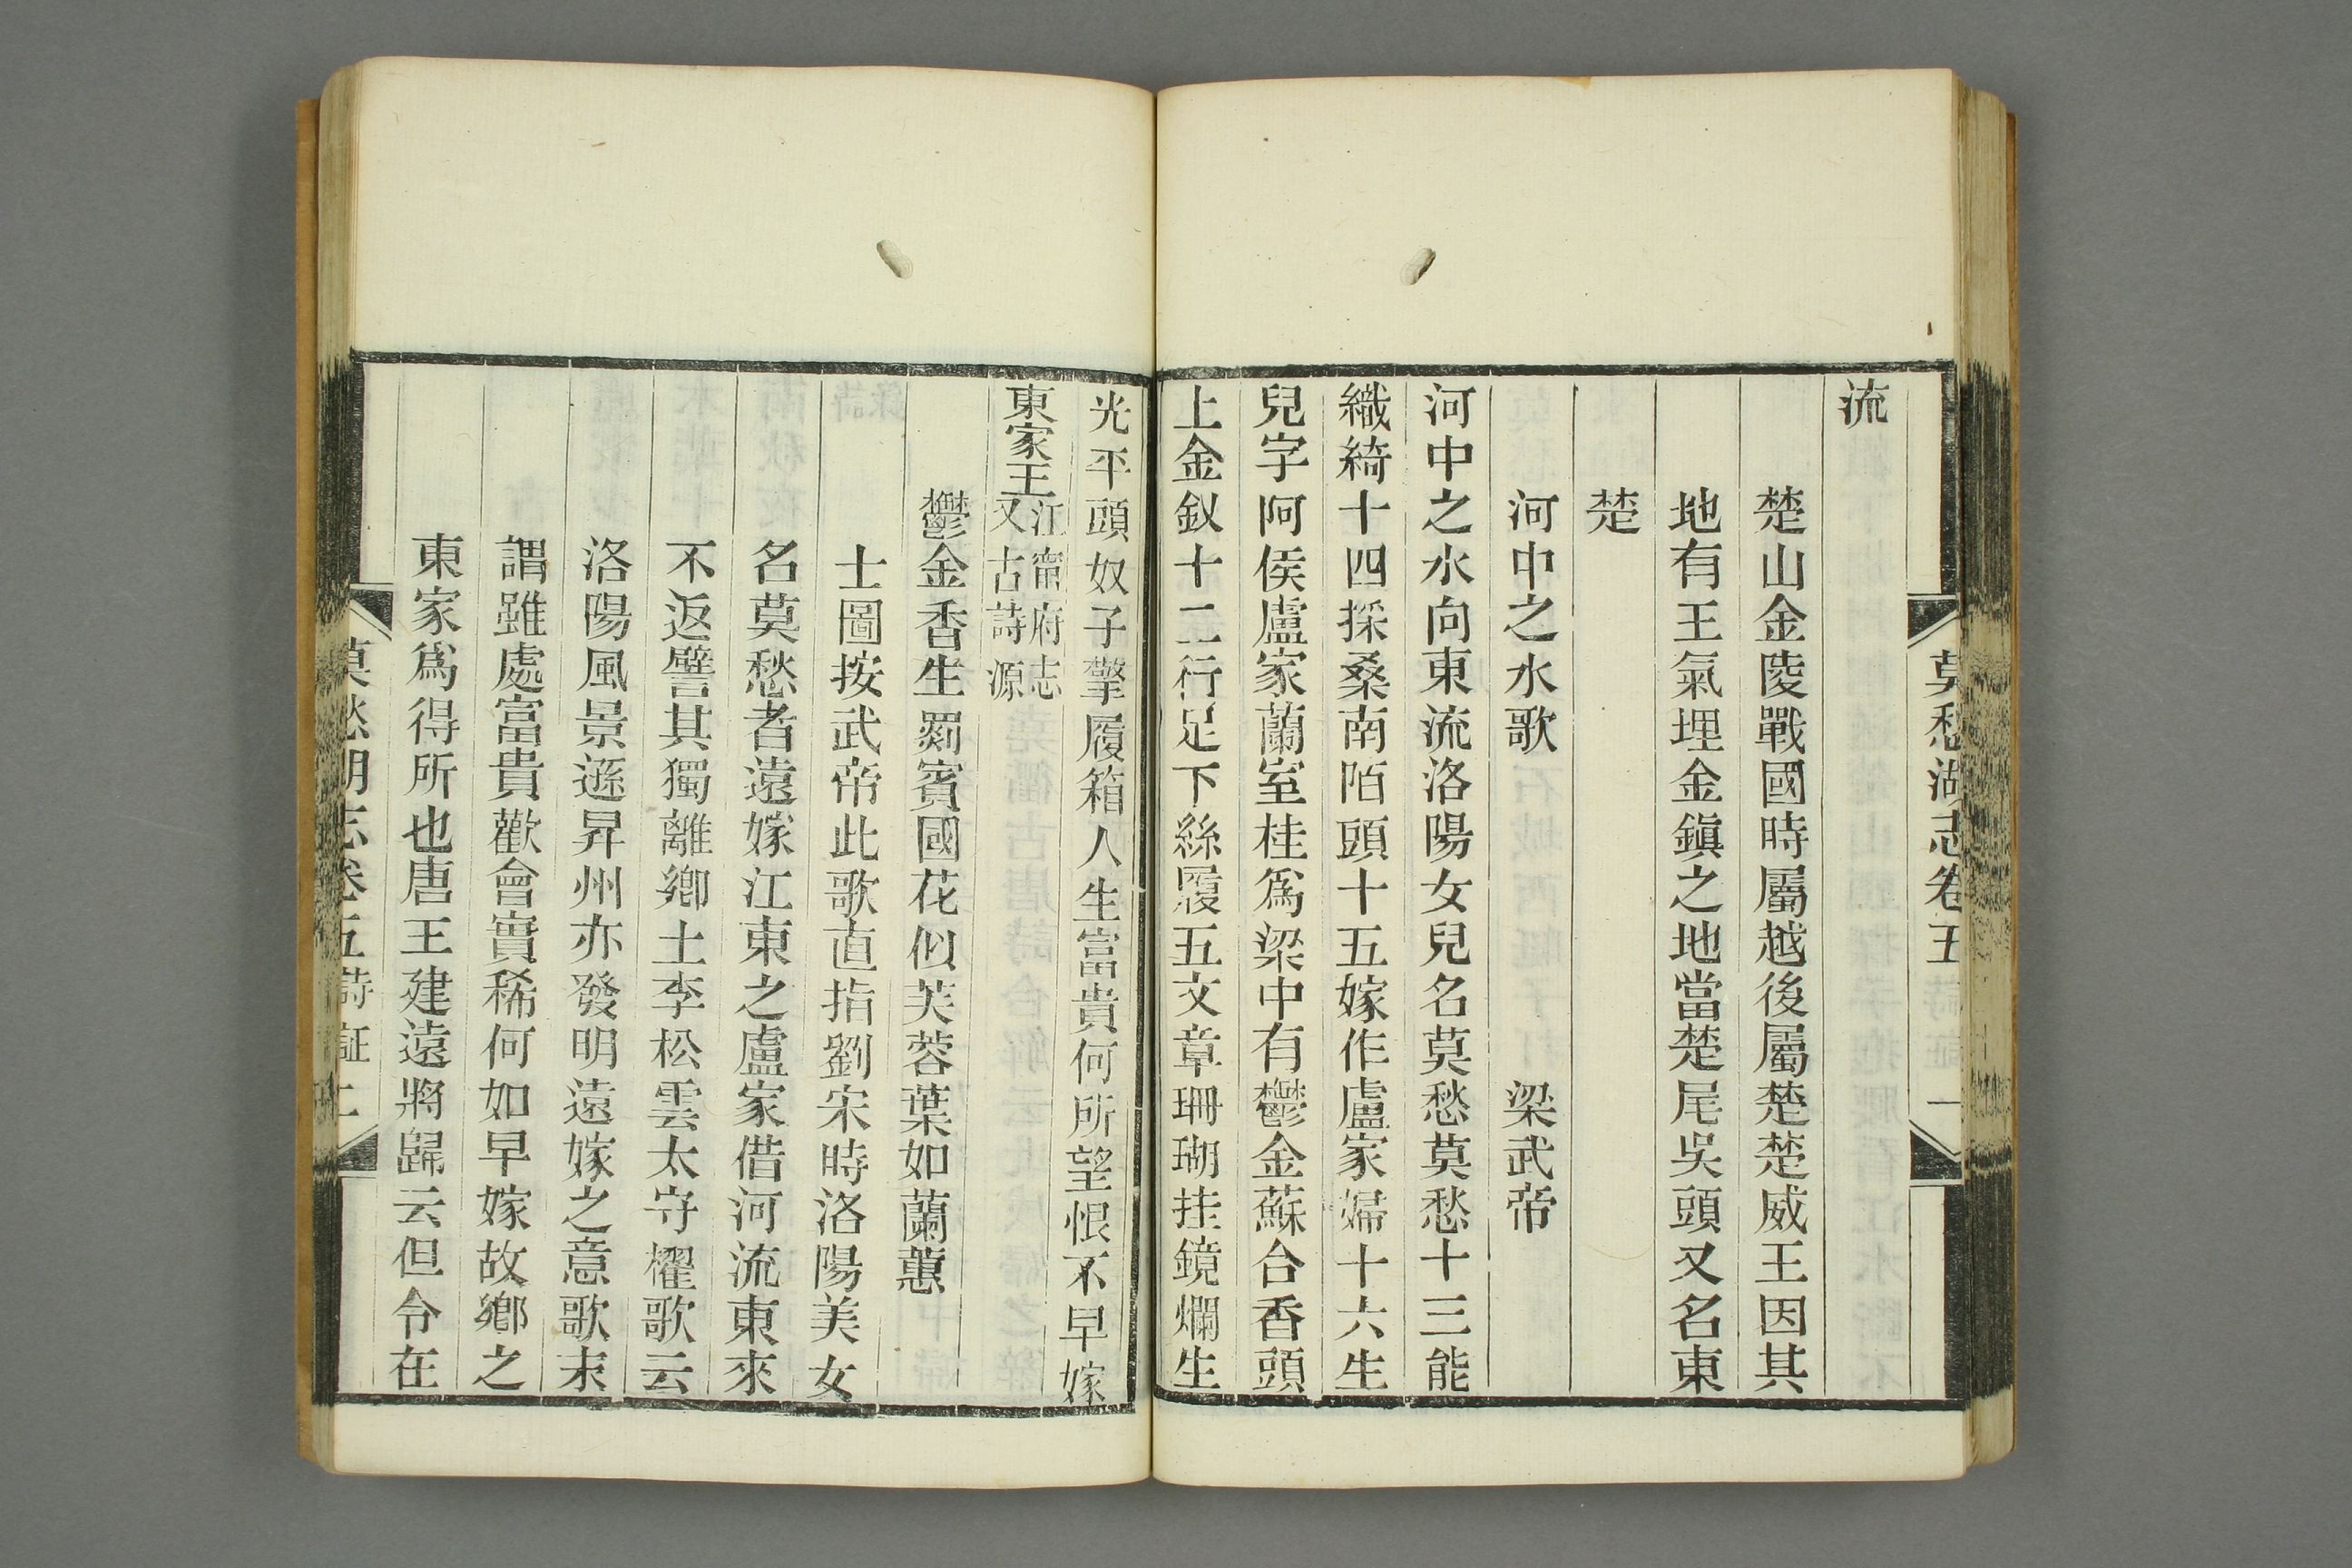 莫愁湖志卷五 詩証 一
流
楚山金陵戰國時屬越後屬楚楚威王因其
地有王氣埋金鎭之地當楚尾吳頭又名東
楚
河中之水歌 梁武帝
河中之水向東流洛陽女兒名莫愁莫愁十三能
織綺十四採桑南陌頭十五嫁作盧家婦十六生
兒字阿侯盧家蘭室桂爲梁中有鬱金蘇合香頭
上金釵十二行足下絲履五文章珊瑚挂鏡爛生
光平頭奴子擎履箱人生富貴何所望恨不早嫁
東家王
江甯府志
又古詩源
鬱金香生罽賓國花似芙蓉葉如蘭蕙
士圖按武帝此歌直指劉宋時洛陽美女
名莫愁者遠嫁江東之盧家借河流東來
不返譬其獨離鄉土李松雲太守櫂歌云
洛陽風景遜昇州亦發明遠嫁之意歌末
謂雖處富貴歡會實稀何如早嫁故鄉之
東家爲得所也唐王建遠將歸云但令在
莫愁湖志卷五 詩証 二